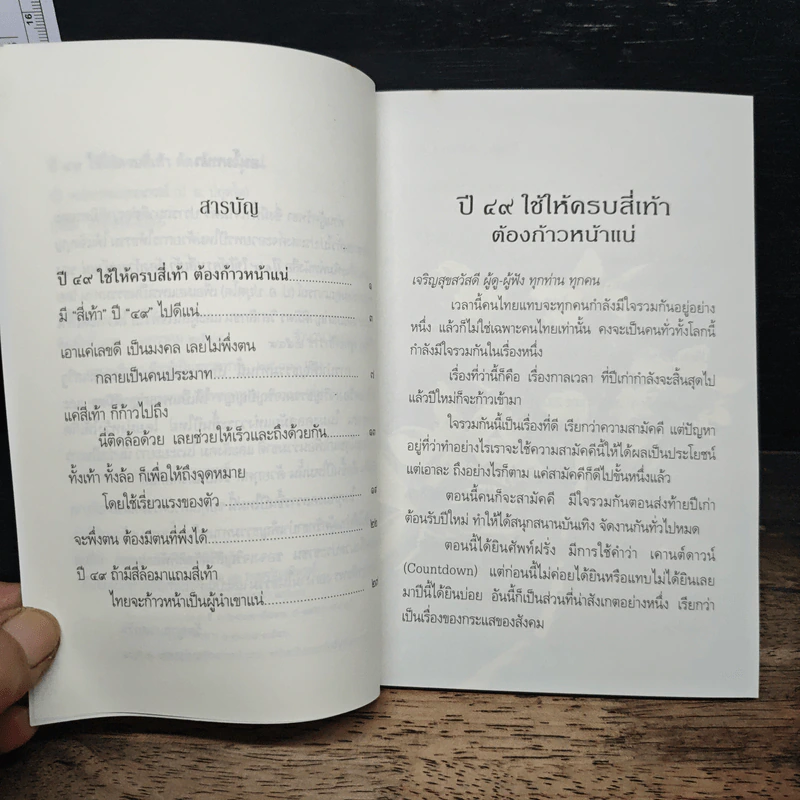 16
สารบัญ
ปี ๔๙ ใช้ให้ครบสี่เท้า ต้องก้าวหน้าแน่ ๑
มี “สี่เท้า” ปี “๔๙” ไปดีแน่ ๓
เอาแค่เลขดี เป็นมงคล เลยไม่พึ่งตน
กลายเป็นคนประมาท ๗
แค่สี่เท้า ก็ก้าวไปถึง
นี่ติดล้อด้วย เลยช่วยให้เร็วและถึงด้วยกัน ๑๓
ทั้งเท้า ทั้งล้อ ก็เพื่อให้ถึงจุดหมาย
โดยใช้เรี่ยวแรงของตัว ๑๙
จะพึ่งตน ต้องมีตนที่พึ่งได้
ปี ๔๙ ถ้ามีสี่ล้อมาแถมสี่เท้า
ไทยจะก้าวหน้าเป็นผู้นำเขาแน่ ๒๙
ปี ๔๙ ใช้ให้ครบสี่เท้า
ต้องก้าวหน้าแน่
เจริญสุขสวัสดี ผู้ดู-ผู้ฟัง ทุกท่าน ทุกคน
เวลานี้คนไทยแทบจะทุกคนกำลังมีใจรวมกันอยู่อย่าง
หนึ่ง แล้วก็ไม่ใช่เฉพาะคนไทยเท่านั้น คงจะเป็นคนทั่วทั้งโลกนี้
กำลังมีใจรวมกันในเรื่องหนึ่ง
เรื่องที่ว่านี้ก็คือ เรื่องกาลเวลา ที่ปีเก่ากำลังจะสิ้นสุดไป
แล้วปีใหม่ก็จะก้าวเข้ามา
ใจรวมกันนี้เป็นเรื่องที่ดี เรียกว่าความสามัคคี แต่ปัญหา
อยู่ที่ว่าทำอย่างไรเราจะใช้ความสามัคคีนี้ให้ได้ผลเป็นประโยชน์
แต่เอาละ ถึงอย่างไรก็ตาม แค่สามัคคีก็ดีไปขั้นหนึ่งแล้ว
ตอนนี้คนก็จะสามัคคี มีใจรวมกันตอนส่งท้ายปีเก่า
ต้อนรับปีใหม่ ทำให้ได้สนุกสนานบันเทิง จัดงานกันทั่วไปหมด
ตอนนี้ได้ยินศัพท์ฝรั่ง มีการใช้คำว่า เคานต์ดาวน์
(Countdown) แต่ก่อนนี้ไม่ค่อยได้ยินหรือแทบไม่ได้ยินเลย
มาปีนี้ได้ยินบ่อย อันนี้ก็เป็นส่วนที่น่าสังเกตอย่างหนึ่ง เรียกว่า
เป็นเรื่องของกระแสของสังคม